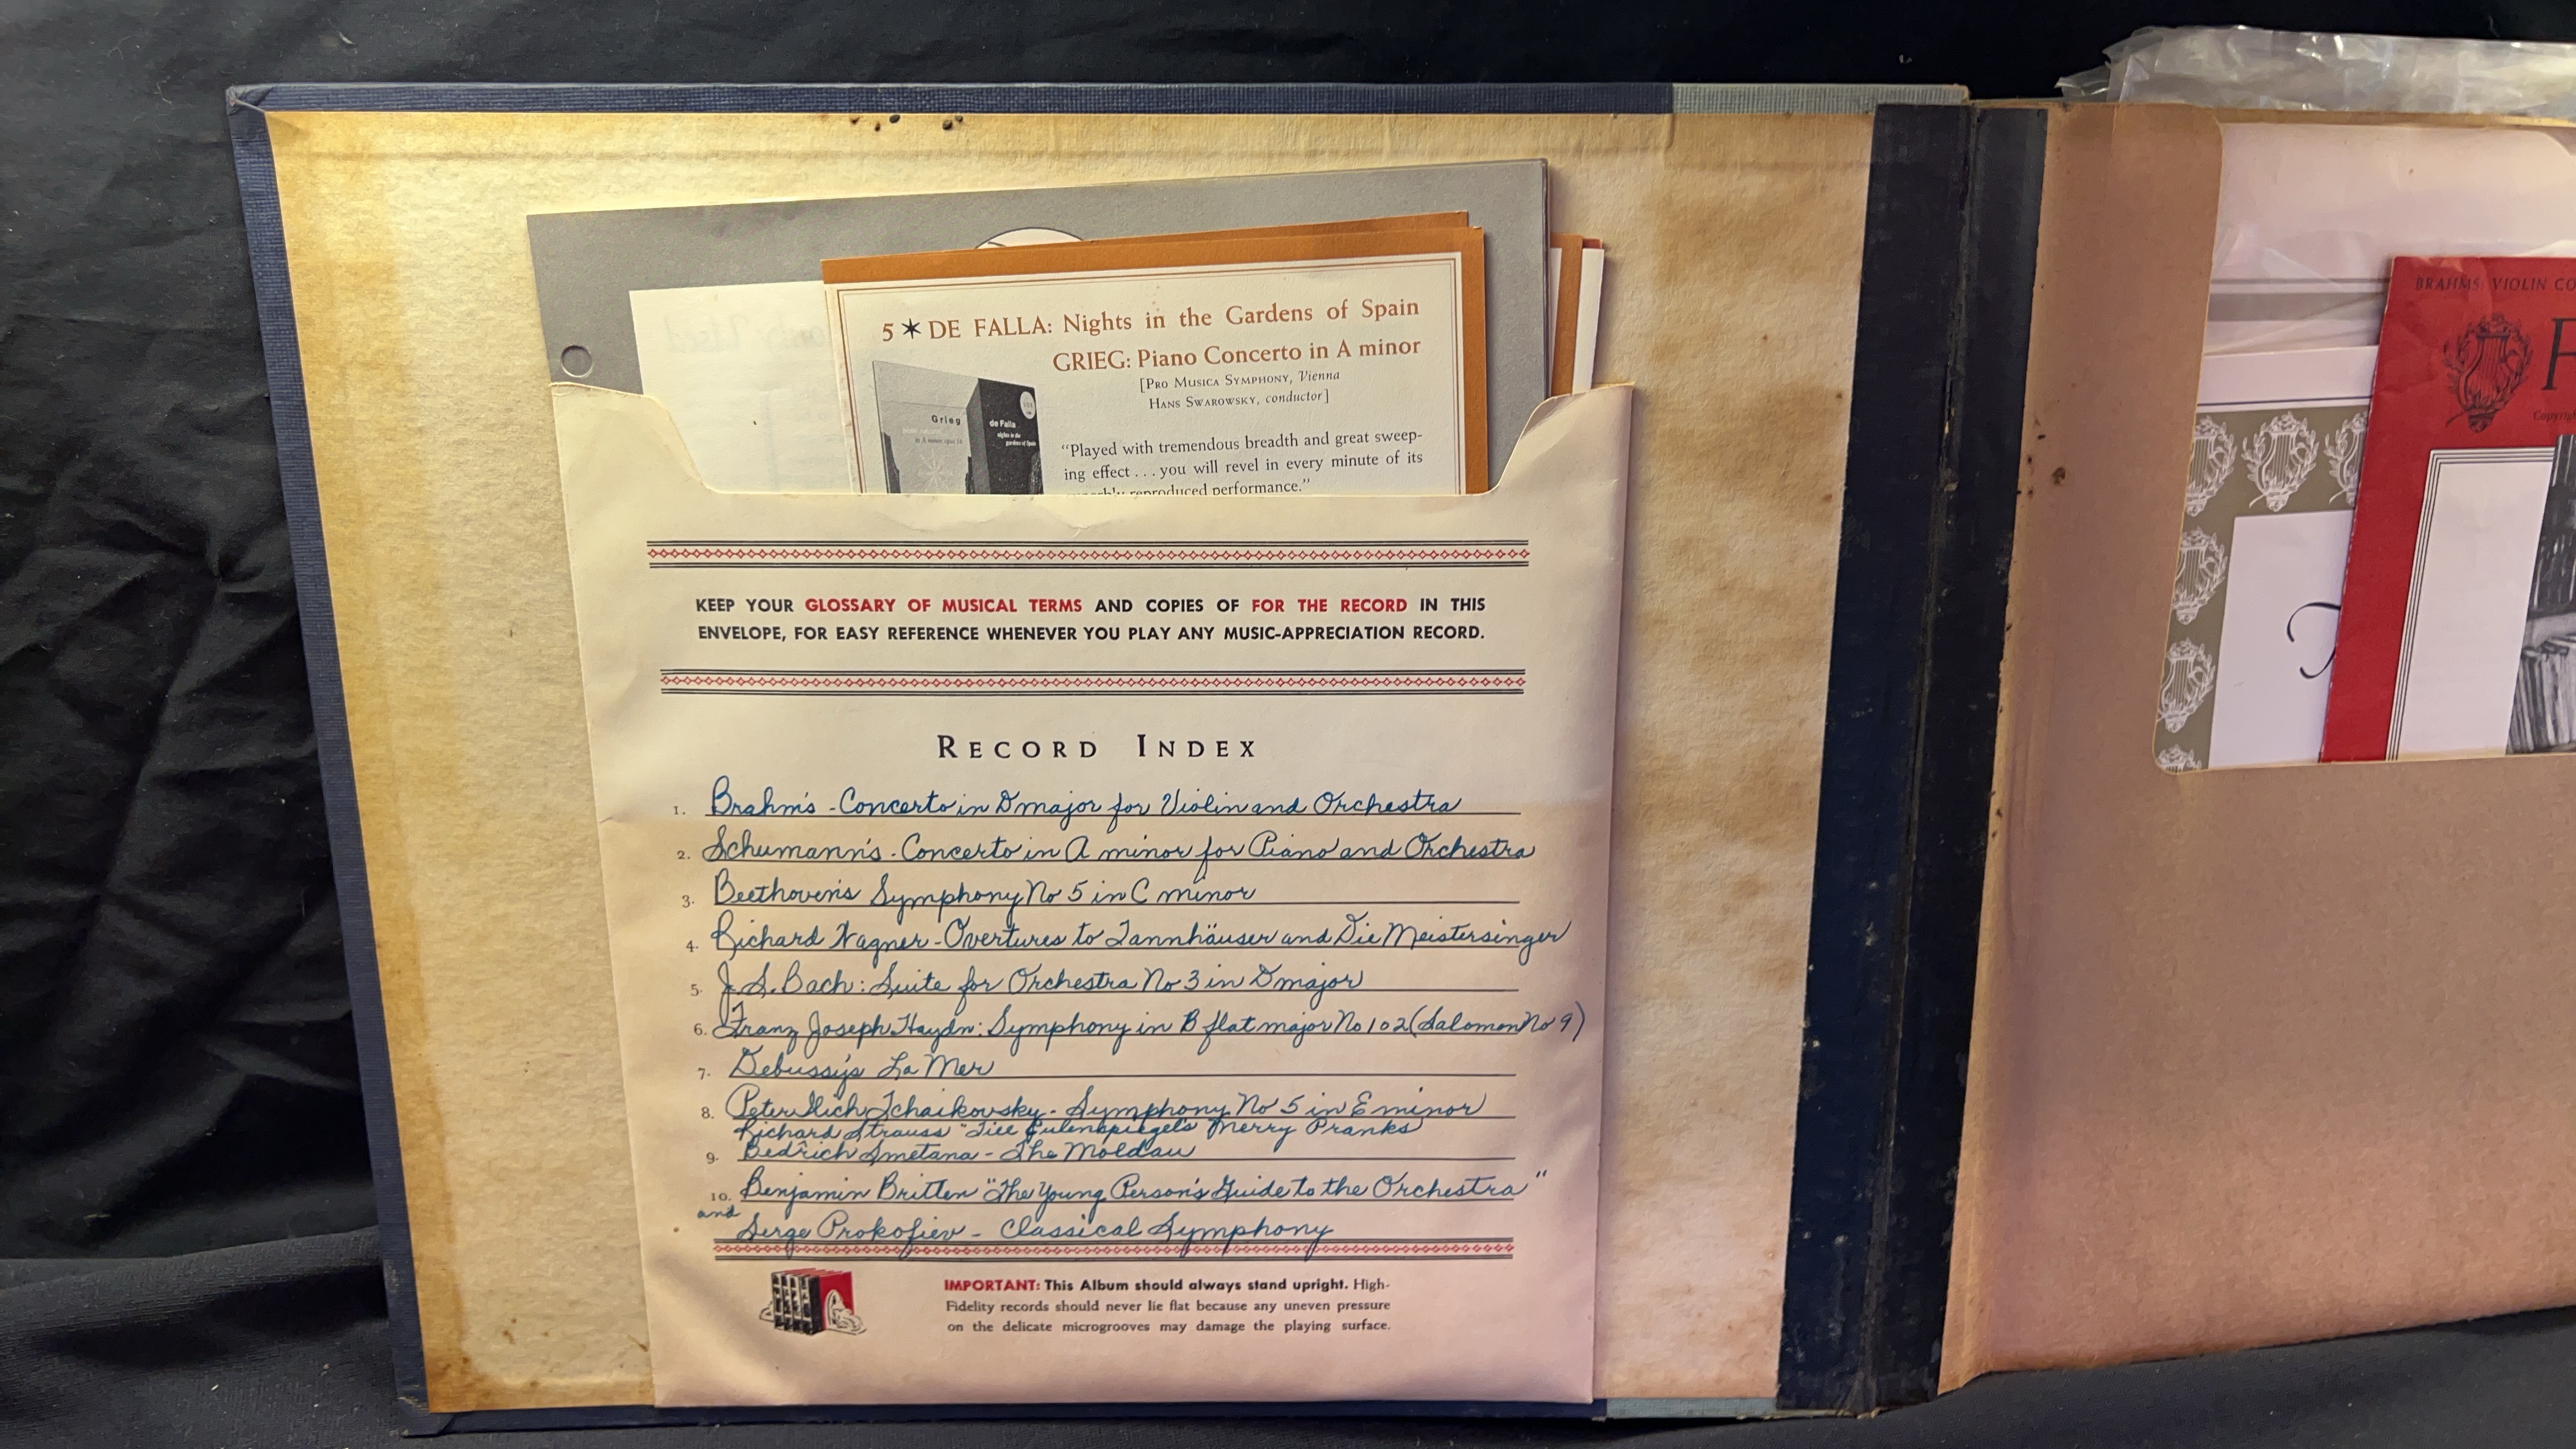 5 ✶ DE FALLA: Nights in the Gardens of Spain
GRIEG: Piano Concerto in A minor
[PRO MUSICA SYMPHONY, Vienna
HANS SWAROWSKY, conductor]
Grieg
de Falla
nights in the
gardens of Spain
in A minor opus 16
"Played with tremendous breadth and great sweep-
ing effect . . . you will revel in every minute of its
reproduced performance."
KEEP YOUR GLOSSARY OF MUSICAL TERMS AND COPIES OF FOR THE RECORD IN THIS
ENVELOPE, FOR EASY REFERENCE WHENEVER YOU PLAY ANY MUSIC-APPRECIATION RECORD.
RECORD INDEX
1. Brahm's - Concerto in D major for Violin and Orchestra
2. Schumann's - Concerto in A minor for Piano and Orchestra
3. Beethoven's Symphony No 5 in C minor
4. Richard Wagner - Overtures to Tannhäuser and Die Meistersinger
5. J. S. Bach: Suite for Orchestra No 3 in D major
6. Franz Joseph Haydn: Symphony in B flat major No 102 (Salomon No 9)
7. Debussy's La Mer
8. Peter Ilich Tchaikovsky - Symphony No 5 in E minor
Richard Strauss "Till Eulenspiegel's Merry Pranks
9. Bedřich Smetana - The Moldau
10. Benjamin Britten "The Young Person's Guide to the Orchestra"
and
Serge Prokofiev - Classical Symphony
IMPORTANT: This Album should always stand upright. High-
Fidelity records should never lie flat because any uneven pressure
on the delicate microgrooves may damage the playing surface.
BRAHMS: VIOLIN CO
F